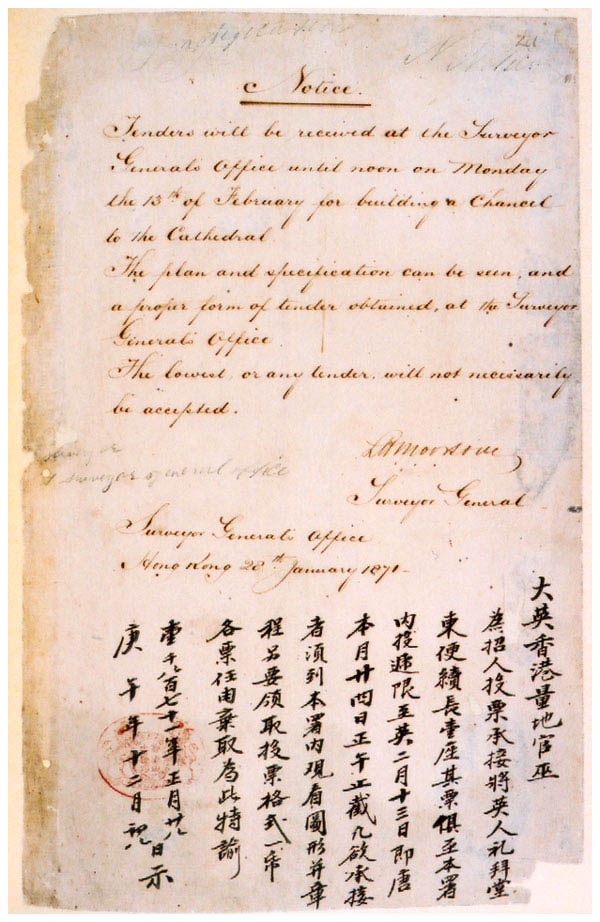 Notice.
Tenders will be received at the Surveyor
General's Office until noon on Monday
the 13th of February for building a Chancel
to the Cathedral.
The plan and specification can be seen, and
a proper form of tender obtained, at the Surveyor
General's Office.
The lowest, or any tender, will not necessarily
be accepted.
surveyor general office
Surveyor General
Surveyor General's Office
Hong Kong 28th January 1871
大英香港量地官巫
為招人投票承接將英人礼拜堂
東便續長壹座其票俱至本署
內投遞限至英二月十三日即唐
本月廿四日正午止截凡欲承接
者須到本署內觀看圖形并章
程另要領取投票格式一帋
各票任由棄取為此特諭
壹千八百七十一年正月廿八日示
庚午年十二月初八